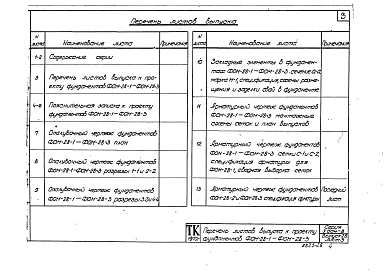 3
Перечень листов выпуска
N листа
Наименование листа
Примечание
1-2
Содержание серии
3
Перечень листов выпуска к про-
екту фундаментов ФОН-28-1—ФОН-28-3
4-6
Пояснительная записка к проекту
фундаментов ФОН-28-1—ФОН-28-3
7
Опалубочный чертеж фундаментов
ФОН-28-1—ФОН-28-3 план
8
Опалубочный чертеж фундаментов
ФОН-28-1—ФОН-28-3 разрезы 1-1 и 2-2
9
Опалубочный чертеж фундаментов
ФОН-28-1—ФОН-28-3 разрезы 3-3 и 4-4
N листа
Наименование листа
Примечание
10
Закладные элементы в фундамен-
тах ФОН-28-1—ФОН-28-3
марка Н-1, спецификация, схемы разме-
щения и заделки свай в фундаменте
11
Арматурный чертеж фундаментов
ФОН-28-1—ФОН-28-3 монтажные
схемы сеток и план выпусков
12
Арматурный чертеж фундаментов
ФОН-28-1—ФОН-28-3 сетки С-1 и С-2,
спецификация арматуры для
ФОН-28-1, сводная выборка сеток
13
Арматурный чертеж фундаментов
ФОН-28-2 и ФОН-28-3 спецификация арматуры
Последний
лист
ТК
1972
Перечень листов выпуска к проекту
фундаментов ФОН-28-1—ФОН-28-3
Серия
Выпуск 28
Лист 3
4